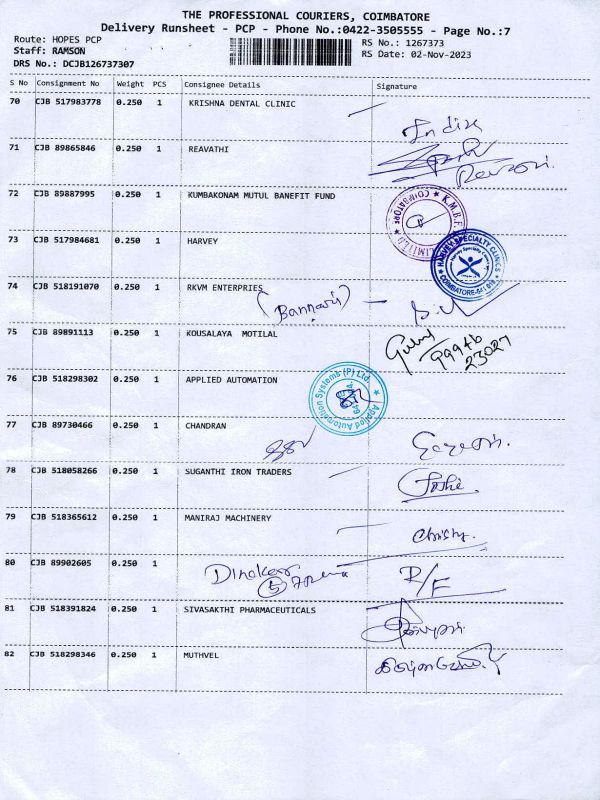 THE PROFESSIONAL COURIERS, COIMBATORE
Delivery Runsheet - PCP - Phone No.:0422-3505555 - Page No.:7
Route: HOPES PCP
RS No.: 1267373
Staff: RAMSON
RS Date: 02-Nov-2023
DRS No.: DCJB126737307
S No Consignment No Weight PCS Consignee Details Signature
70 CJB 517983778 0.250 1 KRISHNA DENTAL CLINIC
71 CJB 89865846 0.250 1 REAVATHI
72 CJB 89887995 0.250 1 KUMBAKONAM MUTUL BANEFIT FUND
K.M.B.F. LIMITED COIMBATORE
73 CJB 517984681 0.250 1 HARVEY
HARVEY SPECIALTY CLINICS COIMBATORE-641
74 CJB 518191070 0.250 1 RKVM ENTERPRIES
(Bannari)
75 CJB 89891113 0.250 1 KOUSALAYA MOTILAL
99946
23027
76 CJB 518298302 0.250 1 APPLIED AUTOMATION
Applied Automation Systems (P) Ltd.
77 CJB 89730466 0.250 1 CHANDRAN
78 CJB 518058266 0.250 1 SUGANTHI IRON TRADERS
79 CJB 518365612 0.250 1 MANIRAJ MACHINERY
Christy
80 CJB 89902605 0.250 1
Dinakar R/F
5
81 CJB 518391824 0.250 1 SIVASAKTHI PHARMACEUTICALS
82 CJB 518298346 0.250 1 MUTHVEL